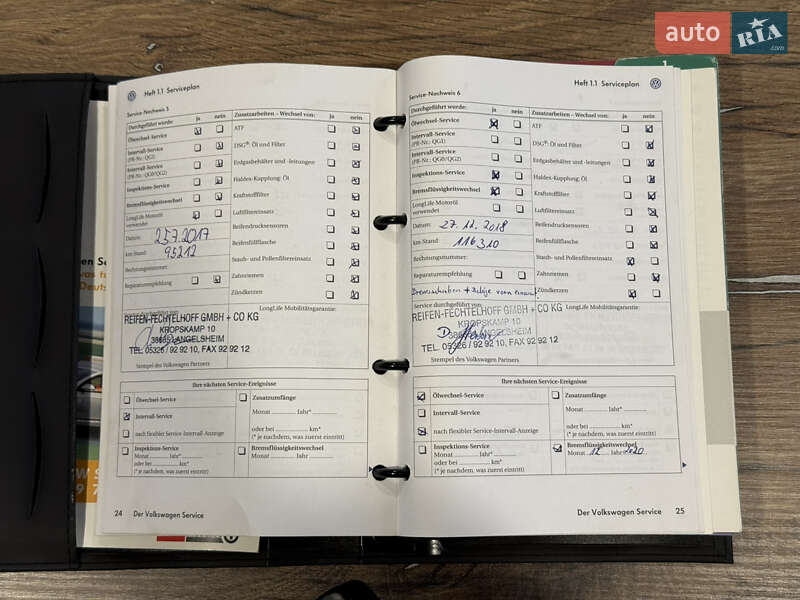 auto RIA .com
Heft 1.1 Serviceplan
Service-Nachweis 5
Durchgeführt wurde: ja nein Zusatzarbeiten - Wechsel von: ja nein
Ölwechsel-Service ATF
Intervall-Service DSG® Öl und Filter
(PR-Nr.: QG1)
Intervall-Service Erdgasbehälter und -leitungen
(PR-Nr.: QG0/QG2)
Inspektions-Service Haldex-Kupplung: Öl
Bremsflüssigkeitswechsel Kraftstofffilter
LongLife Motoröl Luftfiltereinsatz
verwendet
Datum: 25.7.2017 Reifendrucksensoren
km-Stand: 95212 Reifenfüllflasche
Rechnungsnummer: Staub- und Pollenfiltereinsatz
Reparaturempfehlung Zahnriemen
Zündkerzen
Service durchgeführt von: LongLife Mobilitätsgarantie:
REIFEN-FECHTELHOFF GMBH + CO KG
KROPSKAMP 10
38685 LANGELSHEIM
TEL. 05326 / 92 92 10, FAX 92 92 12
Stempel des Volkswagen Partners
Ihre nächsten Service-Ereignisse
Ölwechsel-Service Zusatzumfänge
Intervall-Service Monat Jahr*
nach flexibler Service-Intervall-Anzeige oder bei km*
(* je nachdem, was zuerst eintritt)
Inspektions-Service Bremsflüssigkeitswechsel
Monat Jahr* Monat Jahr
oder bei km*
(* je nachdem, was zuerst eintritt)
24 Der Volkswagen Service
Heft 1.1 Serviceplan
Service-Nachweis 6
Durchgeführt wurde: ja nein Zusatzarbeiten - Wechsel von: ja nein
Ölwechsel-Service ATF
Intervall-Service DSG® Öl und Filter
(PR-Nr.: QG1)
Intervall-Service Erdgasbehälter und -leitungen
(PR-Nr.: QG0/QG2)
Inspektions-Service Haldex-Kupplung: Öl
Bremsflüssigkeitswechsel Kraftstofffilter
LongLife Motoröl Luftfiltereinsatz
verwendet
Datum: 27.12.2018 Reifendrucksensoren
km-Stand: 116310 Reifenfüllflasche
Rechnungsnummer: Staub- und Pollenfiltereinsatz
Reparaturempfehlung Zahnriemen
Bremsscheiben + Beläge vorn erneuert Zündkerzen
Service durchgeführt von: LongLife Mobilitätsgarantie:
REIFEN-FECHTELHOFF GMBH + CO KG
KROPSKAMP 10
38685 LANGELSHEIM
TEL. 05326 / 92 92 10, FAX 92 92 12
Stempel des Volkswagen Partners
Ihre nächsten Service-Ereignisse
Ölwechsel-Service Zusatzumfänge
Intervall-Service Monat Jahr*
nach flexibler Service-Intervall-Anzeige oder bei km*
(* je nachdem, was zuerst eintritt)
Inspektions-Service Bremsflüssigkeitswechsel
Monat Jahr* Monat 12 Jahr 2020
oder bei km*
(* je nachdem, was zuerst eintritt)
Der Volkswagen Service 25